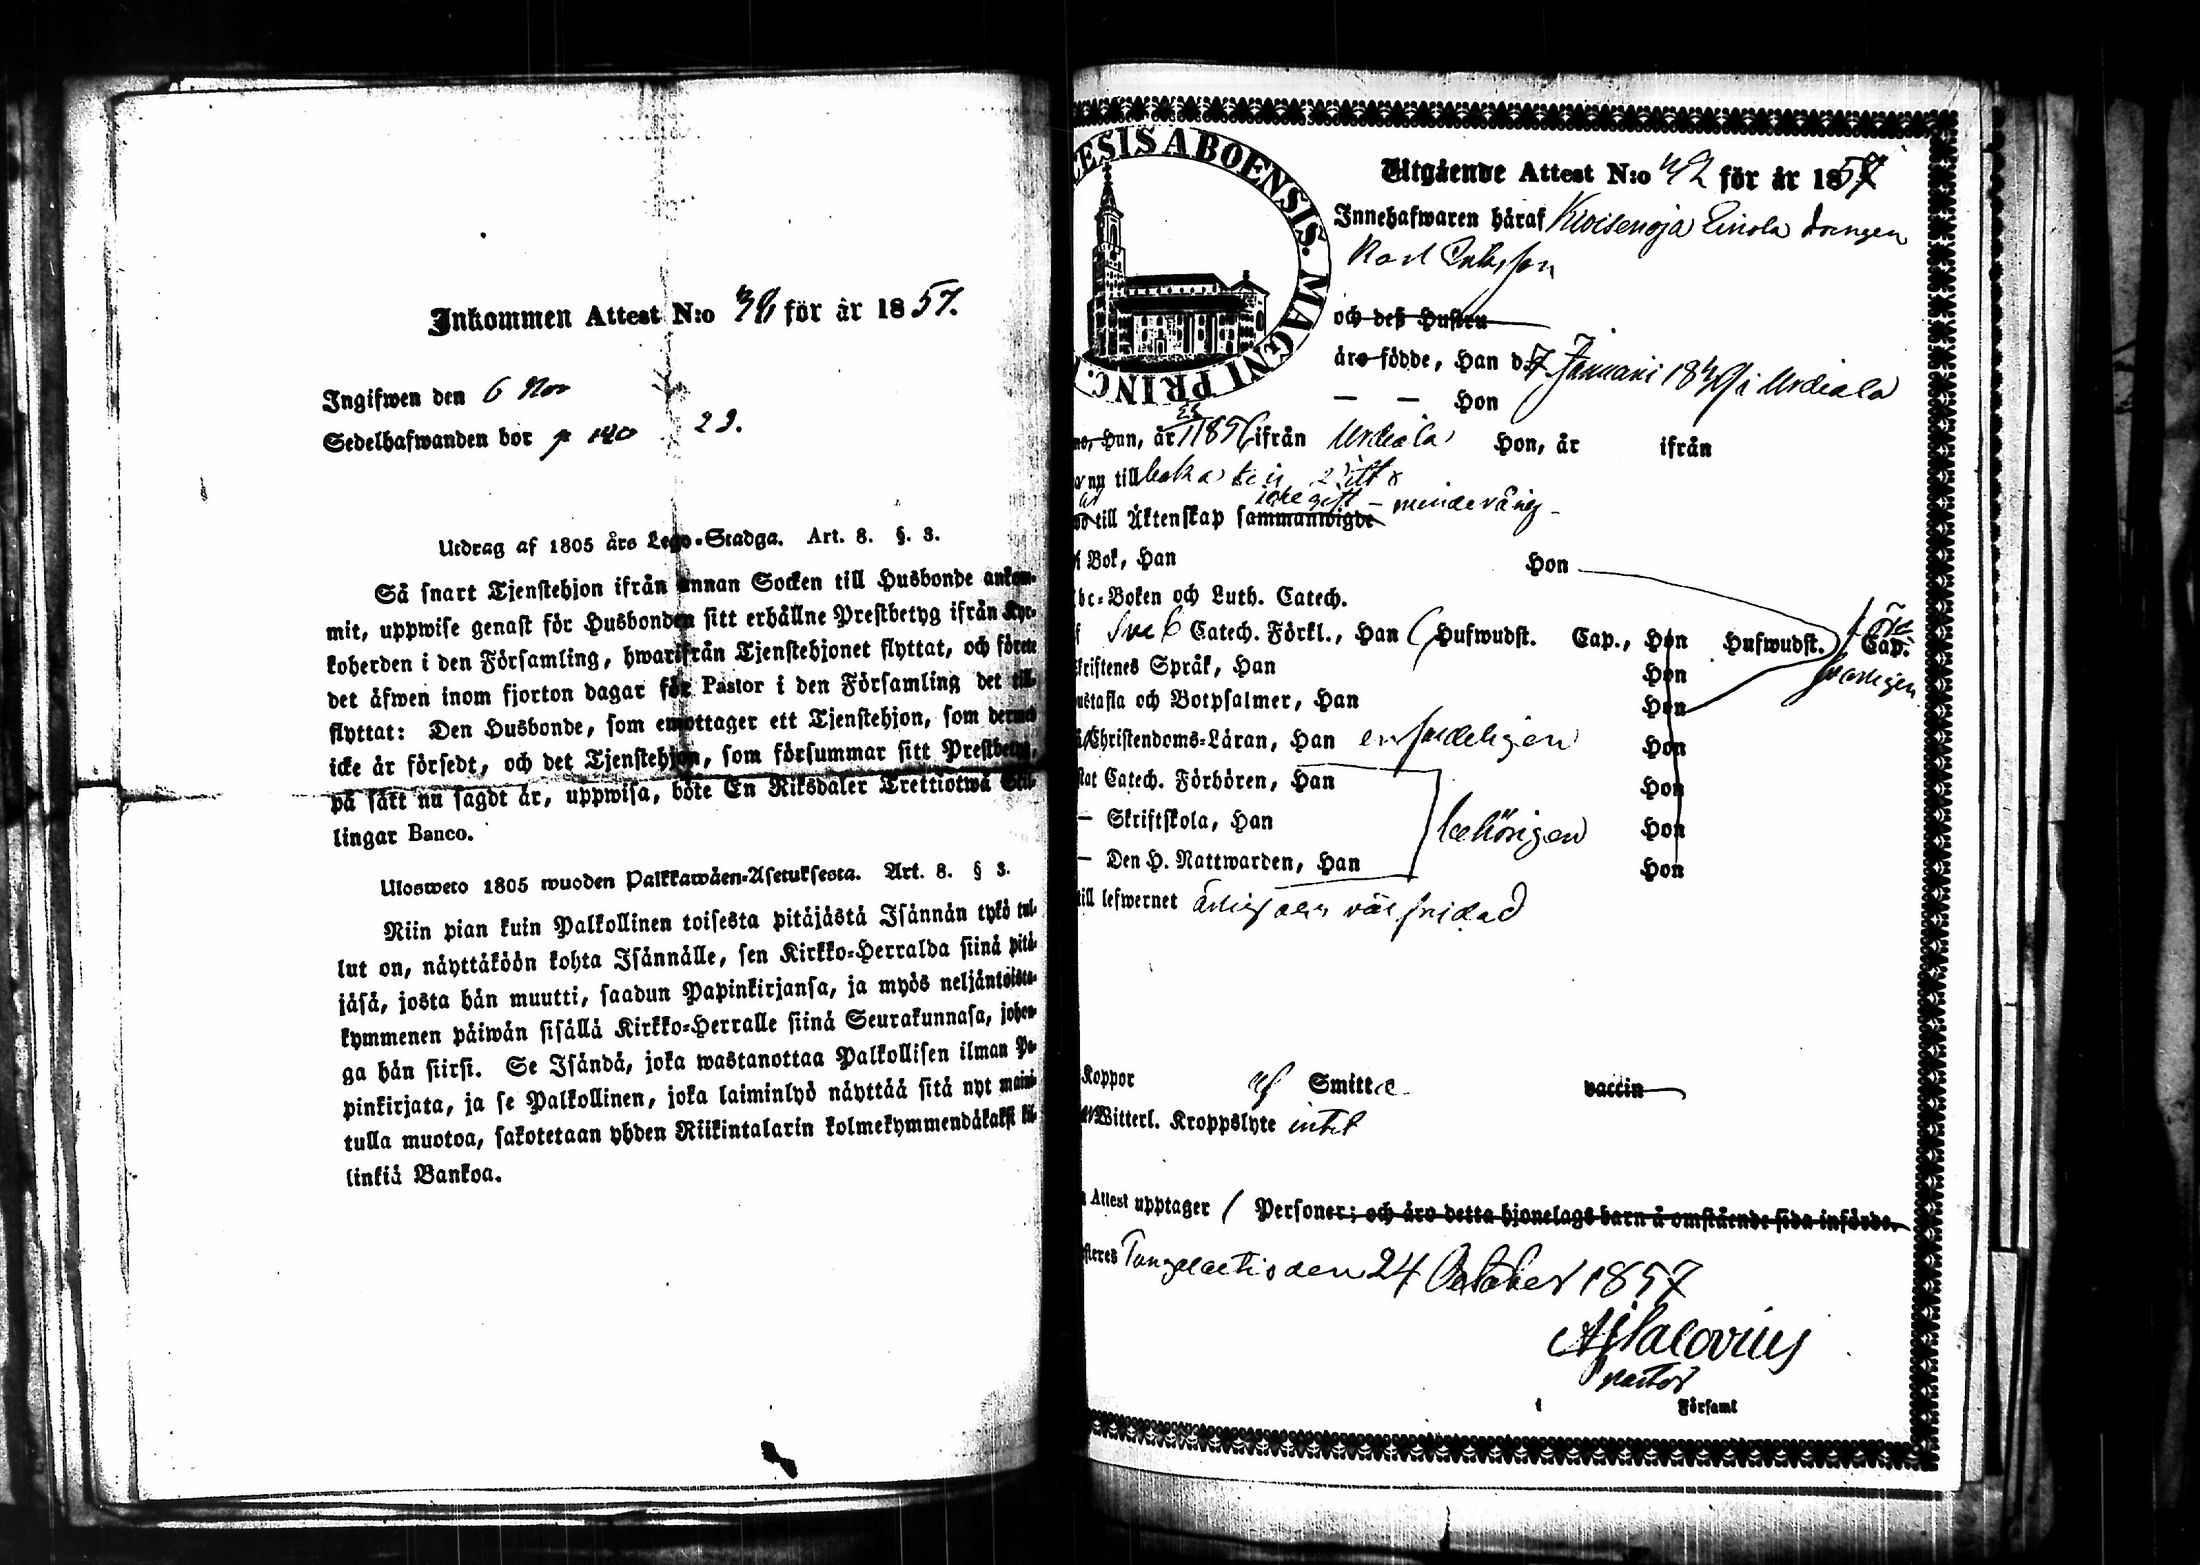 Inkommen Attest N:o 38 för år 1857.
Ingifwen den 6 Nov
Sedelhafwanden bor p 140 23.
Utdrag af 1805 års Lego-Stadga. Art. 8. §. 3.
Så snart Tjenstehjon ifrån annan Socken till Husbonde ankom-
mit, uppwise genast för Husbonden sitt erhållne Prestbetyg ifrån Kyr-
koherden i den Församling, hwarifrån Tjenstehjonet flyttat, och förete
det äfwen inom fjorton dagar för Pastor i den Församling det till-
flyttat: Den Husbonde, som emottager ett Tjenstehjon, som dermed
icke är försedt, och det Tjenstehjon, som försummar sitt Prestbetyg,
på sätt nu sagdt är, uppwisa, böte En Riksdaler Trettiotwå Skil-
lingar Banco.
Ulosweto 1805 wuoden Palkkawäen-Asetuksesta. Art. 8. § 3.
Niin pian kuin Palkollinen toisesta pitäjästä Isännän tykö tul-
lut on, näyttäköön kohta Isännälle, sen Kirkko-Herralda siinä pitä-
jäsä, josta hän muutti, saadun Papinkirjansa, ja myös neljäntoista-
kymmenen päiwän sisällä Kirkko-Herralle siinä Seurakunnasa, johon-
ga hän siirsi. Se Isändä, joka wastanottaa Palkollisen ilman Pa-
pinkirjata, ja se Palkollinen, joka laiminlyö näyttää sitä nyt maini-
tulla muotoa, sakotetaan yhden Riikintalarin kolmekymmendäkaksi kil-
linkiä Bankoa.
CESIS ABOENSIS. MAGNI PRINC.
Utgående Attest N:o 42 för år 1857
Innehafwaren häraf Kivisenoja Einola drengen
Karl
och deß Hustru
äro födde, Han d. 7 Januari 18 i Urdiala
— — Hon
Han, år 1856 ifrån Urdiala Hon, år ifrån
nu till baka
icke gift – minderårig –
till Äktenskap sammanwigde
Bok, Han Hon
Abc-Boken och Luth. Catech.
Sveb Catech. Förkl., Han Hufwudst. Cap., Hon Hufwudst. Cap.
Skriftenes Språk, Han Hon
Hustafla och Botpsalmer, Han Hon
Christendoms-Läran, Han enfaldeligen Hon
Catech. Förhören, Han Hon
— Skriftskola, Han behörigen Hon
— Den H. Nattwarden, Han Hon
till lefwernet ärlig och väl fridad
Koppor af Smitta vaccin
Witterl. Kroppslyte intet
Attest upptager 1 Personer; och äro detta hjonelags barn å omstående sida införde.
den 24 October 1857
Pastor
i Församl